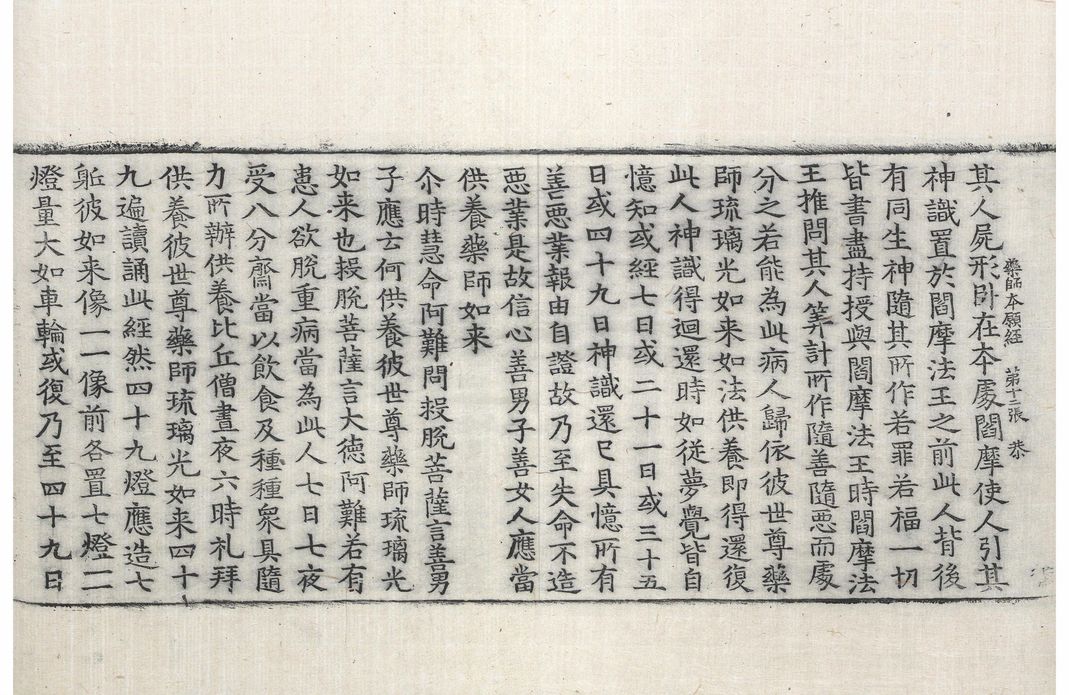 藥師本願經　第十二張　恭
其人屍形卧在本處閻摩使人引其
神識置於閻摩法王之前此人背後
有同生神隨其所作若罪若福一切
皆書盡持授與閻摩法王時閻摩法
王推問其人筭計所作隨善隨惡而處
分之若能為此病人歸依彼世尊藥
師琉璃光如来如法供養即得還復
此人神識得迴還時如從夢覺皆自
憶知或經七日或二十一日或三十五
日或四十九日神識還已具憶所有
善惡業報由自證故乃至失命不造
惡業是故信心善男子善女人應當
供養藥師如来
尒時慧命阿難問捄脫菩薩言善男
子應云何供養彼世尊藥師琉璃光
如来也捄脫菩薩言大德阿難若有
患人欲脫重病當為此人七日七夜
受八分齋當以飲食及種種眾具隨
力所辦供養比丘僧晝夜六時礼拜
供養彼世尊藥師琉璃光如来四十
九遍讀誦此經然四十九燈應造七
軀彼如来像一一像前各置七燈一一
燈量大如車輪或復乃至四十九日